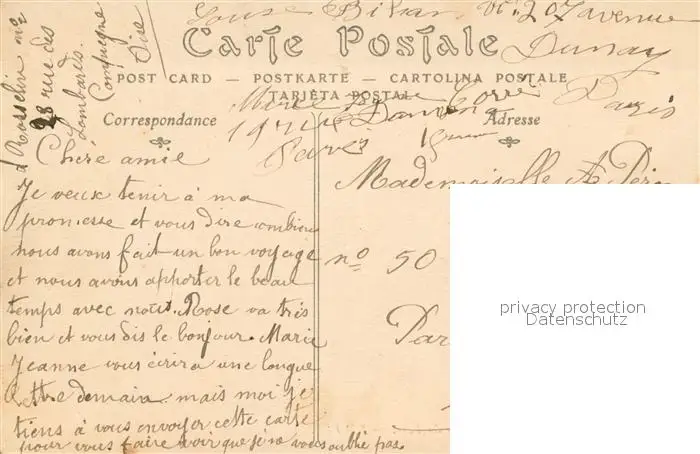 Louse Bihan 207 avenue
Dunay
Paris
Rosselin
28 rue des
Lombards.
Compiegne
Oise
Carte Postale
POST CARD — POSTKARTE — CARTOLINA POSTALE
TARJETA POSTAL
Correspondance
Adresse
Paris
Chère amie
Je veux tenir à ma
promesse et vous dire combien
nous avons fait un bon voyage
et nous avons apporter le beau
temps avec nous. Rose va très
bien et vous dis le bonjour. Marie
Jeanne vous écrira une longue
lettre demain. mais moi je
tiens à vous envoyer cette carte
pour vous faire voir que je ne vous oublie pas.
Mademoiselle A
nº 50
Par
privacy protection
Datenschutz